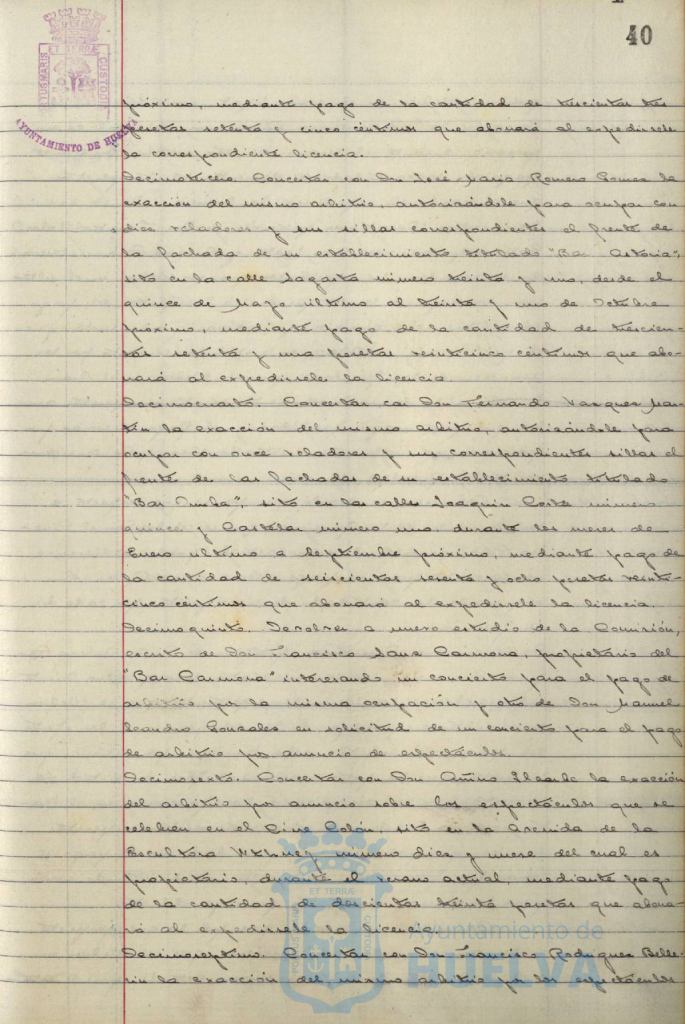 40
PORTUS MARIS
ET TERRÆ
CUSTODIA
AYUNTAMIENTO DE HUELVA
próximo, mediante pago de la cantidad de trescientas tres
pesetas setenta y cinco céntimos que abonará al expedírsele
la correspondiente licencia.
Decimotercero. Concertar con Don José María Romero Gomez la
exacción del mismo arbitrio, autorizándole para ocupar con
diez veladores y sus sillas correspondientes el frente de
la fachada de su establecimiento titulado "Bar Astoria",
sito en la calle Sagasta número treinta y uno, desde el
quince de Mayo último al treinta y uno de Octubre
próximo, mediante pago de la cantidad de trescien-
tas setenta y una pesetas veinticinco céntimos que abo-
nará al expedírsele la licencia.
Decimocuarto. Concertar con Don Fernando Vazquez Mar-
tín la exacción del mismo arbitrio, autorizándole para
ocupar con once veladores y sus correspondientes sillas el
frente de las fachadas de su establecimiento titulado
"Bar", sito en las calles Joaquín Costa número
quince y Castelar número uno, durante los meses de
Enero último a Septiembre próximo, mediante pago de
la cantidad de seiscientas sesenta y ocho pesetas veinti-
cinco céntimos que abonará al expedírsele la licencia.
Decimoquinto. Devolver a nuevo estudio de la Comisión,
escrito de Don Francisco Sanz Carmona, propietario del
"Bar Carmona" interesando un concierto para el pago de
arbitrio por la misma ocupación y otro de Don Manuel
Leandro Gonzalez en solicitud de un concierto para el pago
de arbitrio por anuncio de espectáculos.
Decimosexto. Concertar con Don la exacción
del arbitrio por anuncio sobre los espectáculos que se
celebren en el Cine Colón, sito en la Avenida de la
Escultora Whitney número diez y nueve del cual es
propietario, durante el verano actual, mediante pago
de la cantidad de doscientas treinta pesetas que abona-
rá al expedírsele la licencia.
Decimoseptimo. Concertar con Don Francisco Rodriguez Belle-
rín la exacción del mismo arbitrio por los espectáculos
Ayuntamiento de
HUELVA